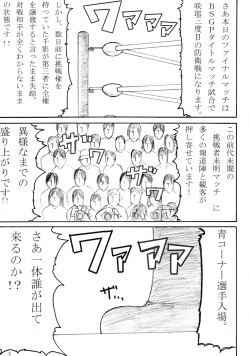 さあ本日のファイナルマッチは
BSGPタイトルマッチ試合で
咲塔二度目の防衛戦になります。
ワァ
ァァァ
しかし、数日前に挑戦権を
持っていた千影が第三者に全権
を譲渡すると言ったまま失踪。
対戦相手が全くわからないまま
の状態です!!
この前代未聞の
挑戦者未明マッチに
多くの報道陣と観客が
押し寄せています!
ワァァァ
異様なまでの
盛り上がりです!!
青コーナー選手入場。
ワァァァ
さあ一体誰が出て
来るのか?!